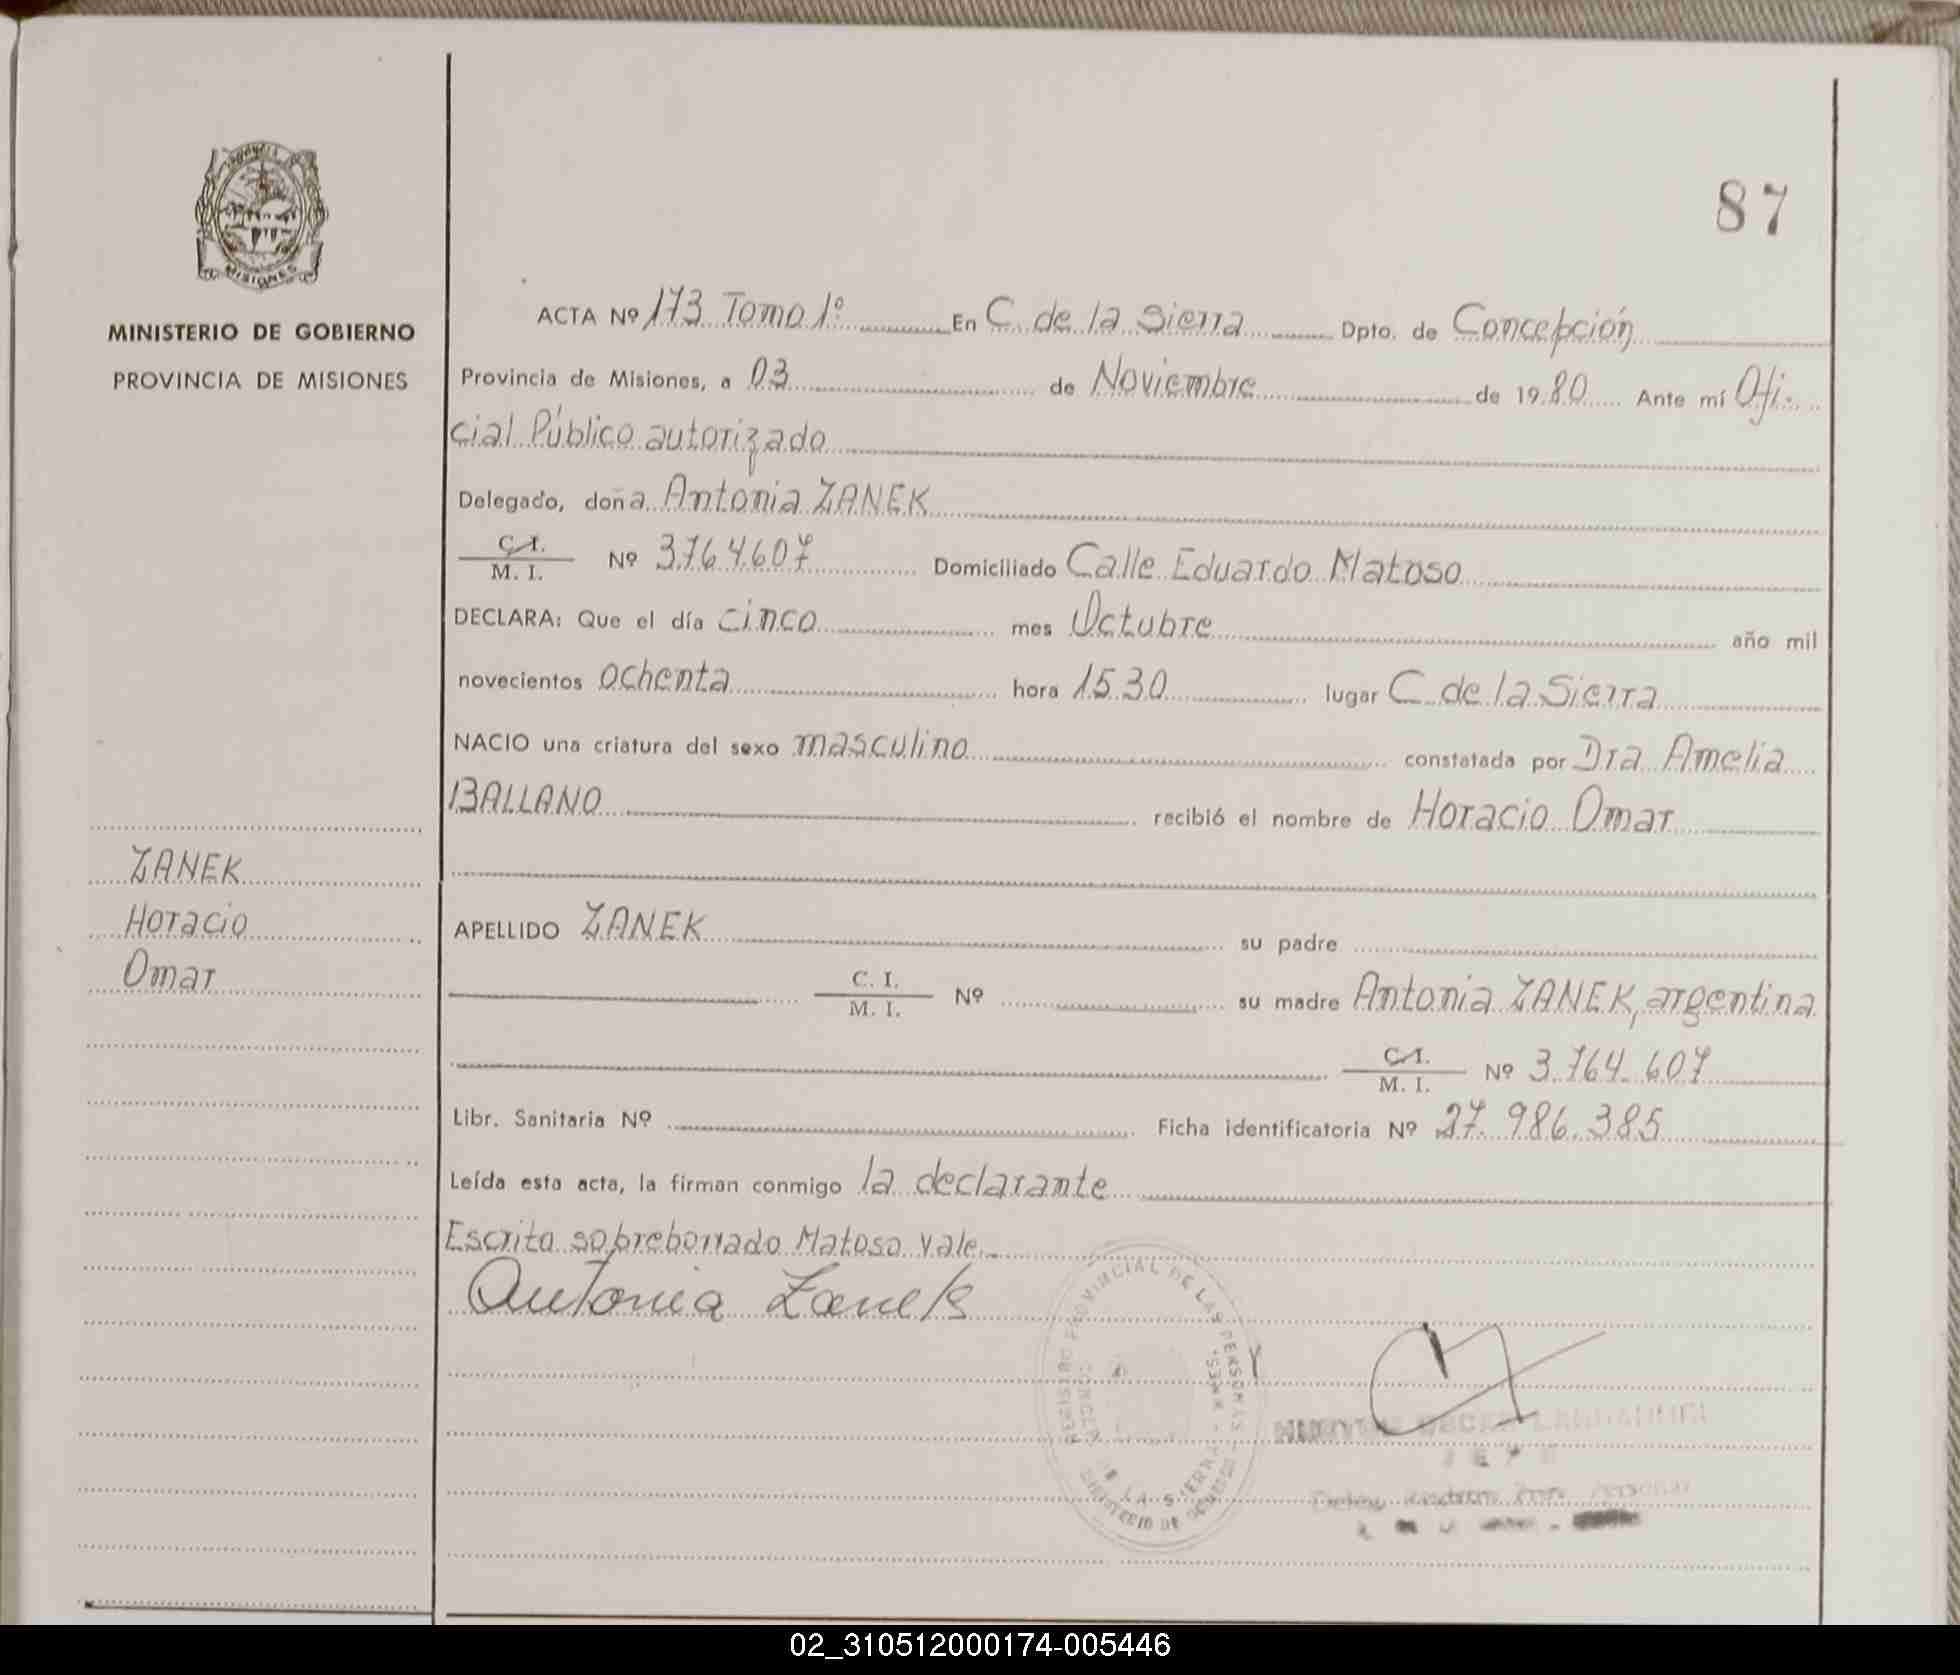 87
MISIONES
MINISTERIO DE GOBIERNO
PROVINCIA DE MISIONES
ZANEK
Horacio
Omar
ACTA Nº 173 Tomo 1º En C. de la Sierra Dpto. de Concepción
Provincia de Misiones, a 03 de Noviembre de 1980 Ante mí Ofi-
cial Público autorizado
Delegado, doña Antonia ZANEK
C.I. / M. I. Nº 3.764.607 Domiciliado Calle Eduardo Matoso
DECLARA: Que el día cinco mes Octubre año mil
novecientos ochenta hora 15.30 lugar C. de la Sierra
NACIO una criatura del sexo masculino constatada por Dra Amelia
BALLANO recibió el nombre de Horacio Omar
APELLIDO ZANEK su padre
C. I. / M. I. Nº su madre Antonia ZANEK, argentina
C.I. / M. I. Nº 3.764.607
Libr. Sanitaria Nº Ficha identificatoria Nº 27.986.385
Leída esta acta, la firman conmigo la declarante
Escrito sobreborrado Matoso vale.
Antonia Zanek
REGISTRO PROVINCIAL DE LAS PERSONAS
MINISTERIO DE GOBIERNO
DE LA SIERRA
02_310512000174-005446